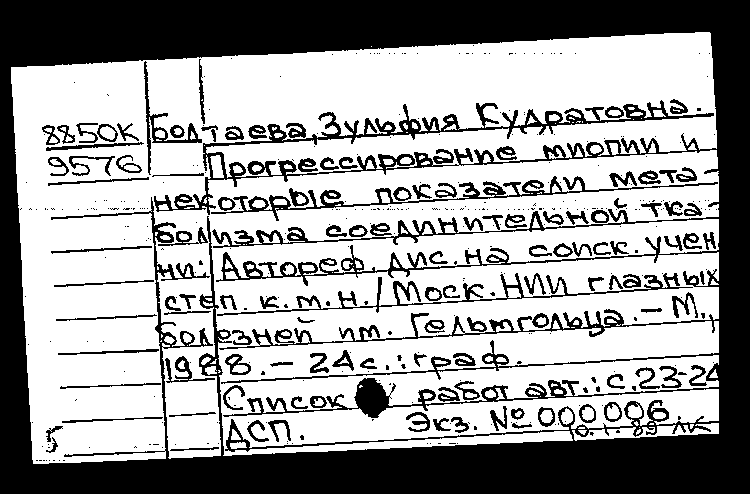 8850К Болтаева, Зульфия Кудратовна.
9576 Прогрессирование миопии и
некоторые показатели мета-
болизма соединительной тка-
ни: Автореф. дис. на соиск. учен.
степ. к.м.н. / Моск. НИИ глазных
болезней им. Гельмгольца. — М.,
1988. — 24с. : граф.
Список работ авт.: с. 23-24
ДСП. Экз. № 000006.
5 10.1.89 ЛК